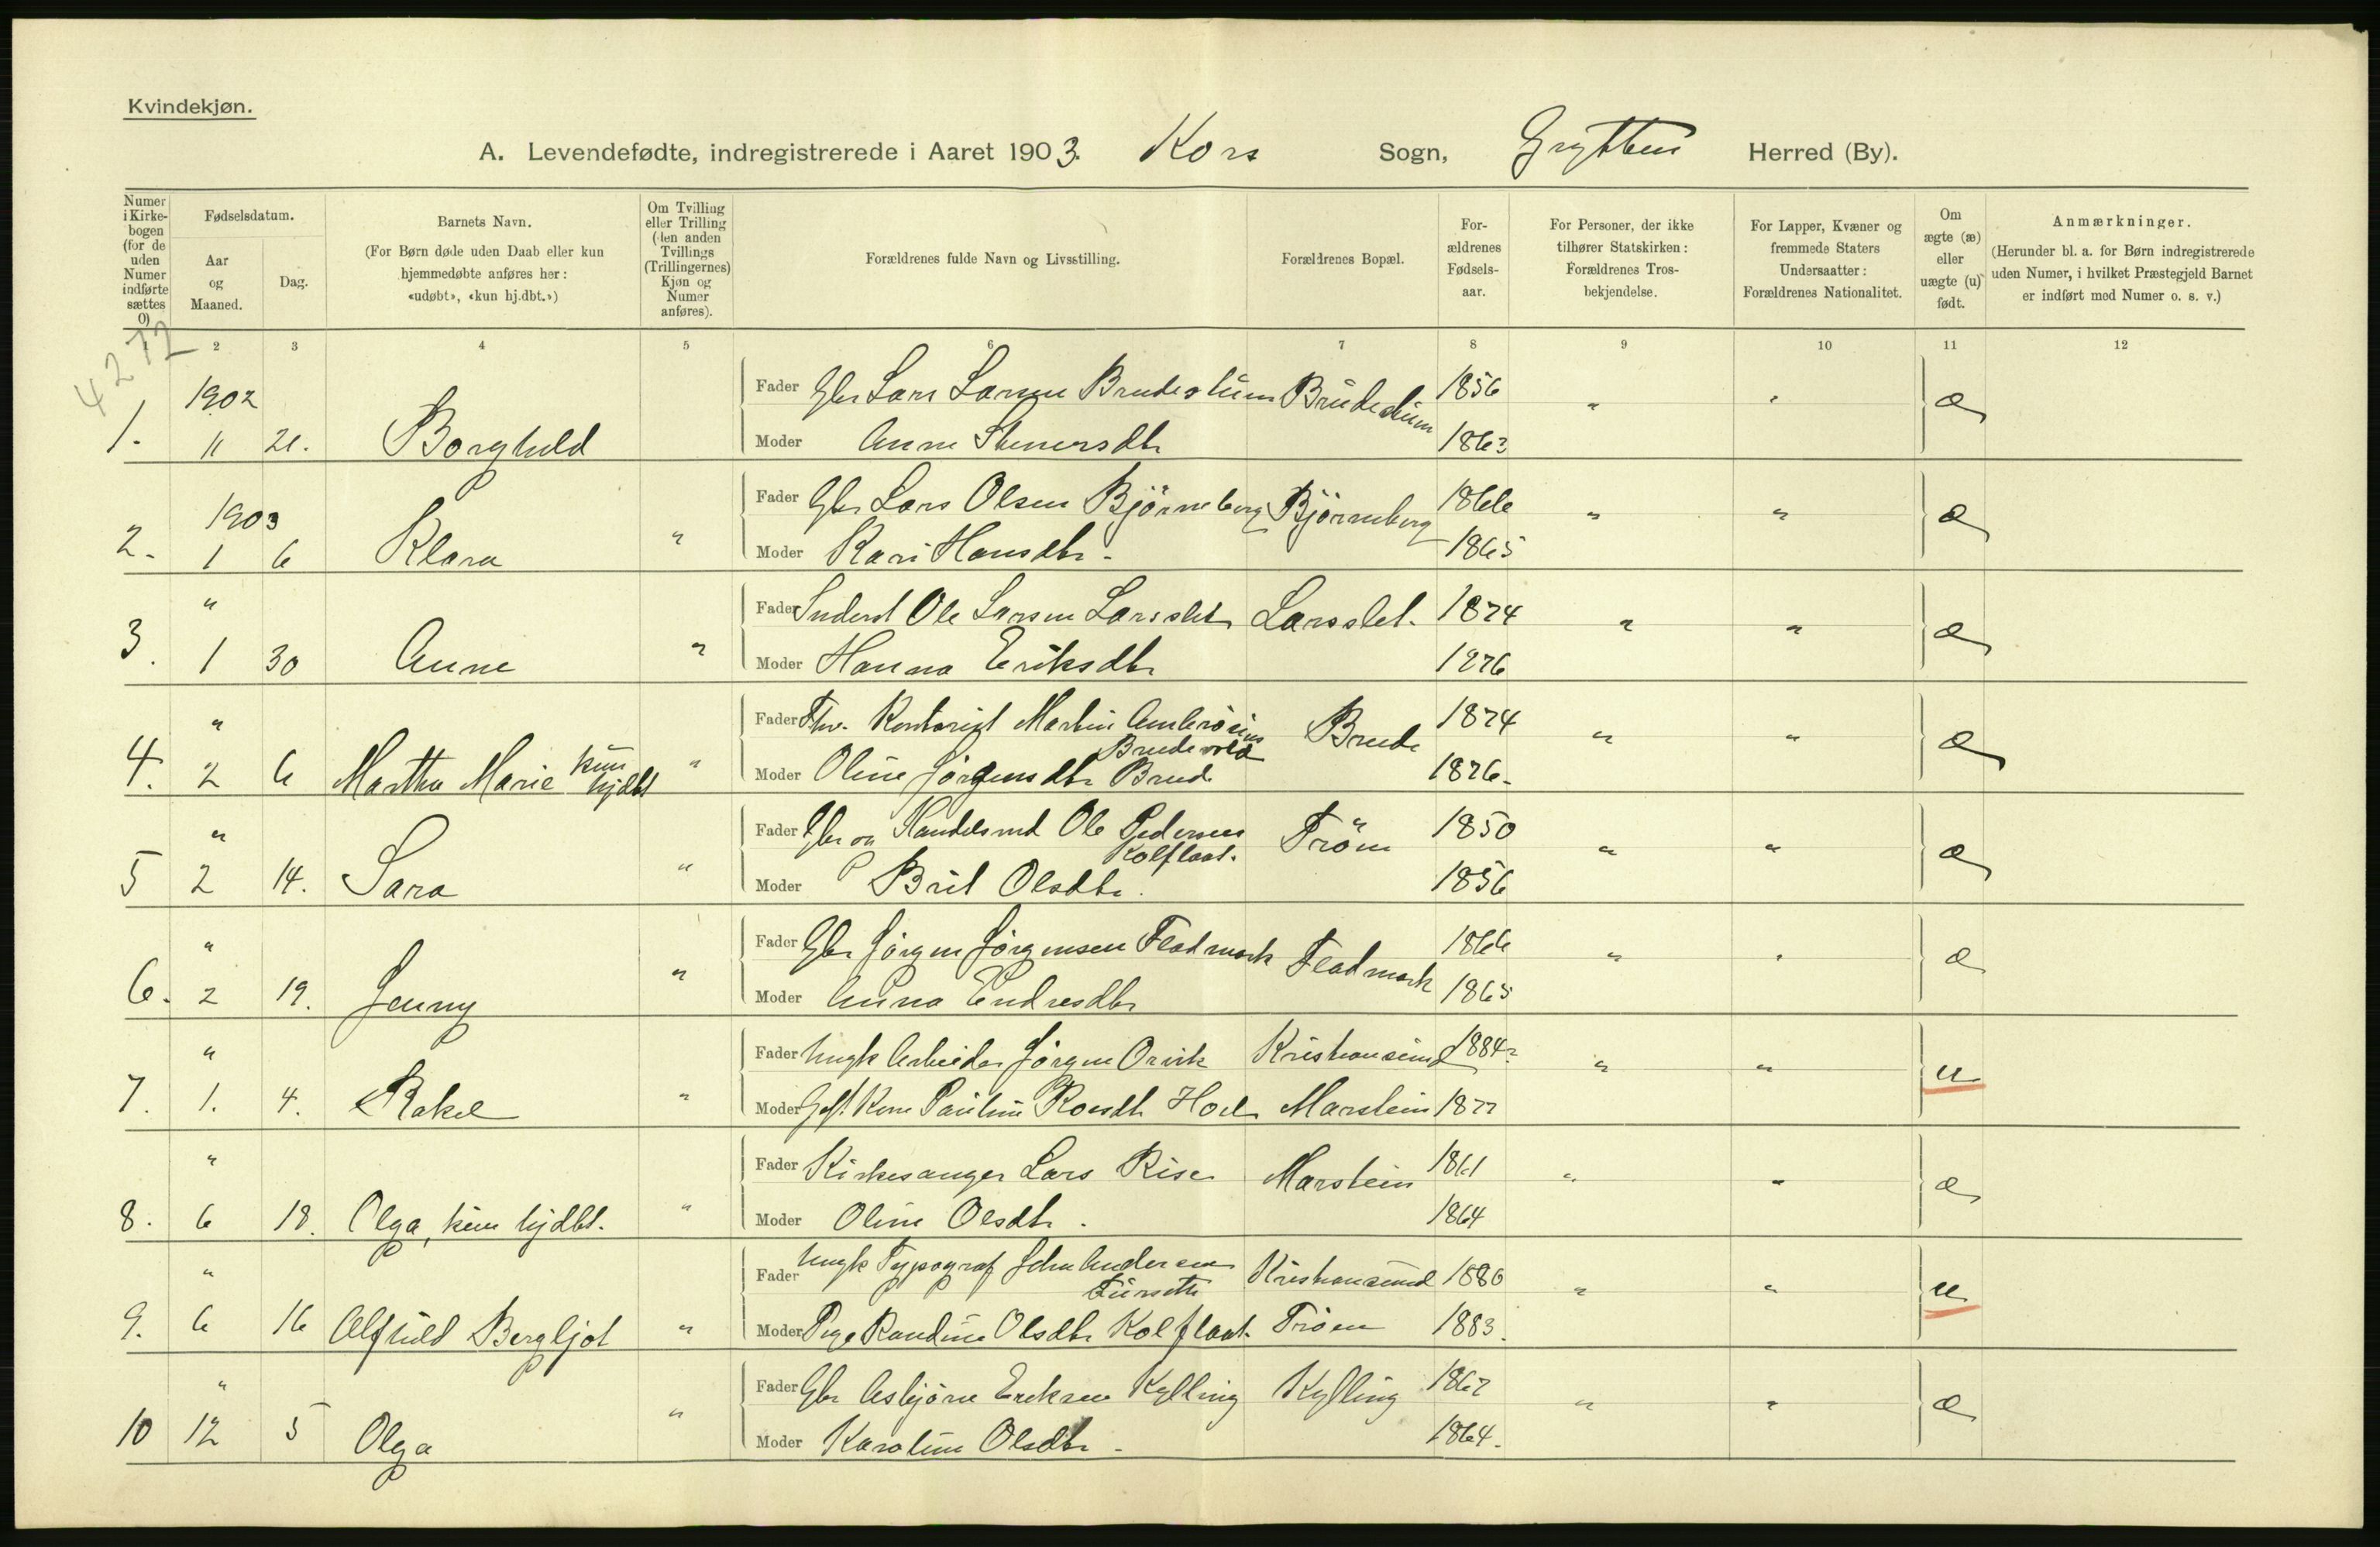 Kvindekjøn.
A. Levendefødte, indregistrerede i Aaret 1903. Kors Sogn, Grytten Herred (By).
Numer i Kirke-bogen (for de uden Numer indførte sættes 0)
Fødselsdatum.
Aar og Maaned.
Dag.
Barnets Navn.
(For Børn døde uden Daab eller kun hjemmedøbte anføres her: «udøbt», «kun hj.dbt.»)
Om Tvilling eller Trilling (den anden Tvillings (Trillingernes) Kjøn og Numer anføres).
Forældrenes fulde Navn og Livsstilling.
Forældrenes Bopæl.
For-ældrenes Fødsels-aar.
For Personer, der ikke tilhører Statskirken: Forældrenes Tros-bekjendelse.
For Lapper, Kvæner og fremmede Staters Undersaatter: Forældrenes Nationalitet.
Om ægte (æ) eller uægte (u) født.
Anmærkninger.
(Herunder bl. a. for Børn indregistrerede uden Numer, i hvilket Præstegjeld Barnet er indført med Numer o. s. v.)
1 2 3 4 5 6 7 8 9 10 11 12
4272
1902 Fader Gbr Lars Larsen Brudeslum Brudeslum 1856 " " æ
1. 11 21. Borghild Moder Anne Stenersdtr 1863
1903 Fader Gbr Lars Olsen Björneberg Björneberg 1866 " " æ
2. 1 6 Klara " Moder Kari Hansdtr. 1865
" Fader Inderst Ole Larsen Larsslet Larsslet. 1874 " " æ
3. 1 30 Anne " Moder Hanna Eriksdtr 1876
" Fader Kontorist Martin Ambrösius Brudevold Brude 1874 " " æ
4. 2 6 Martha Marie kun hjdbt " Moder Oline Jörgensdtr Brude 1876.
" Fader Gbr og Handelsmd Ole Pedersen Kolflaat. Tröen 1850 " " æ
5 2 14. Sara " Moder Brit Olsdtr. 1856
" Fader Gbr Jörgen Jörgensen Flatmark Flatmark 1866 " " æ
6. 2 19. Jenny " Moder Anna Endresdtr 1865
" Fader Ungk Arbeider Jörgen Orvik Kristiansund 1884? " " u
7. 1. 4. Rakel " Moder Pauline Roesdtr Hoel Marstein 1877
" Fader Kirkesanger Lars Rise Marstein 1861 " " æ
8. 6 18. Olga, kun hjdbt. " Moder Oline Olsdtr. 1864
" Fader Ungk Typograf John Andersen Furseth Kristiansund 1880 " " u
9. 6 16 Alfhild Bergljot " Moder Pige Randine Olsdtr Kolflaat. Tröen 1883.
" Fader Gbr Asbjörn Eriksen Kylling Kylling 1867 " " æ
10 12 5 Olga " Moder Karoline Olsdtr. 1864.